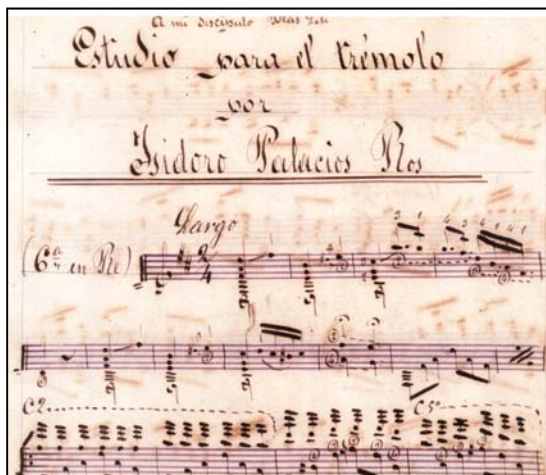 A mi discípulo Blas
Estudio para el trémolo
por
Isidoro Palacios Ros
Largo
(6ª en Re)
2/4
3 1 4 3 4 1 4 1
C2
C5º